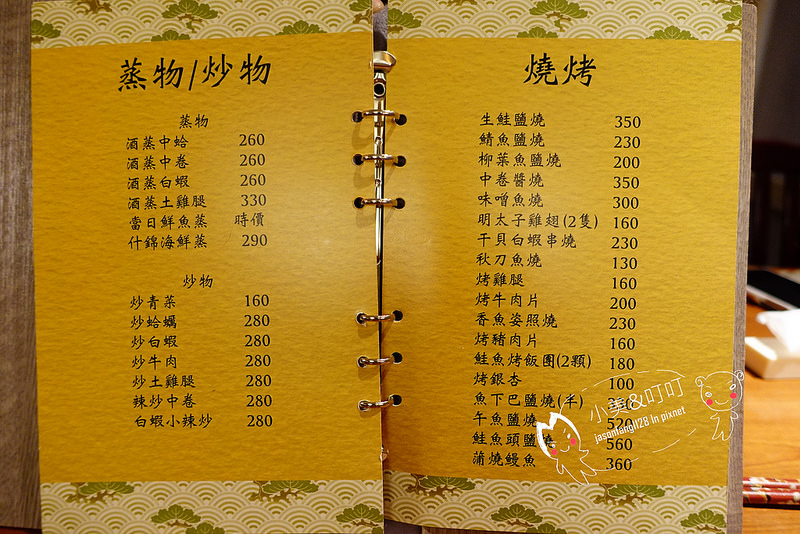 蒸物/炒物
蒸物
酒蒸中蛤 260
酒蒸中卷 260
酒蒸白蝦 260
酒蒸土雞腿 330
當日鮮魚蒸 時價
什錦海鮮蒸 290
炒物
炒青菜 160
炒蛤蠣 280
炒白蝦 280
炒牛肉 280
炒土雞腿 280
辣炒中卷 280
白蝦小辣炒 280
燒烤
生鮭鹽燒 350
鯖魚鹽燒 230
柳葉魚鹽燒 200
中卷醬燒 350
味噌魚燒 300
明太子雞翅(2隻) 160
干貝白蝦串燒 230
秋刀魚燒 130
烤雞腿 160
烤牛肉片 200
香魚姿照燒 230
烤豬肉片 160
鮭魚烤飯團(2顆) 180
烤銀杏 100
魚下巴鹽燒(半)
午魚鹽燒 520
鮭魚頭鹽燒 560
蒲燒鰻魚 360
小芙&叮叮
jasonfang1128 in pixnet